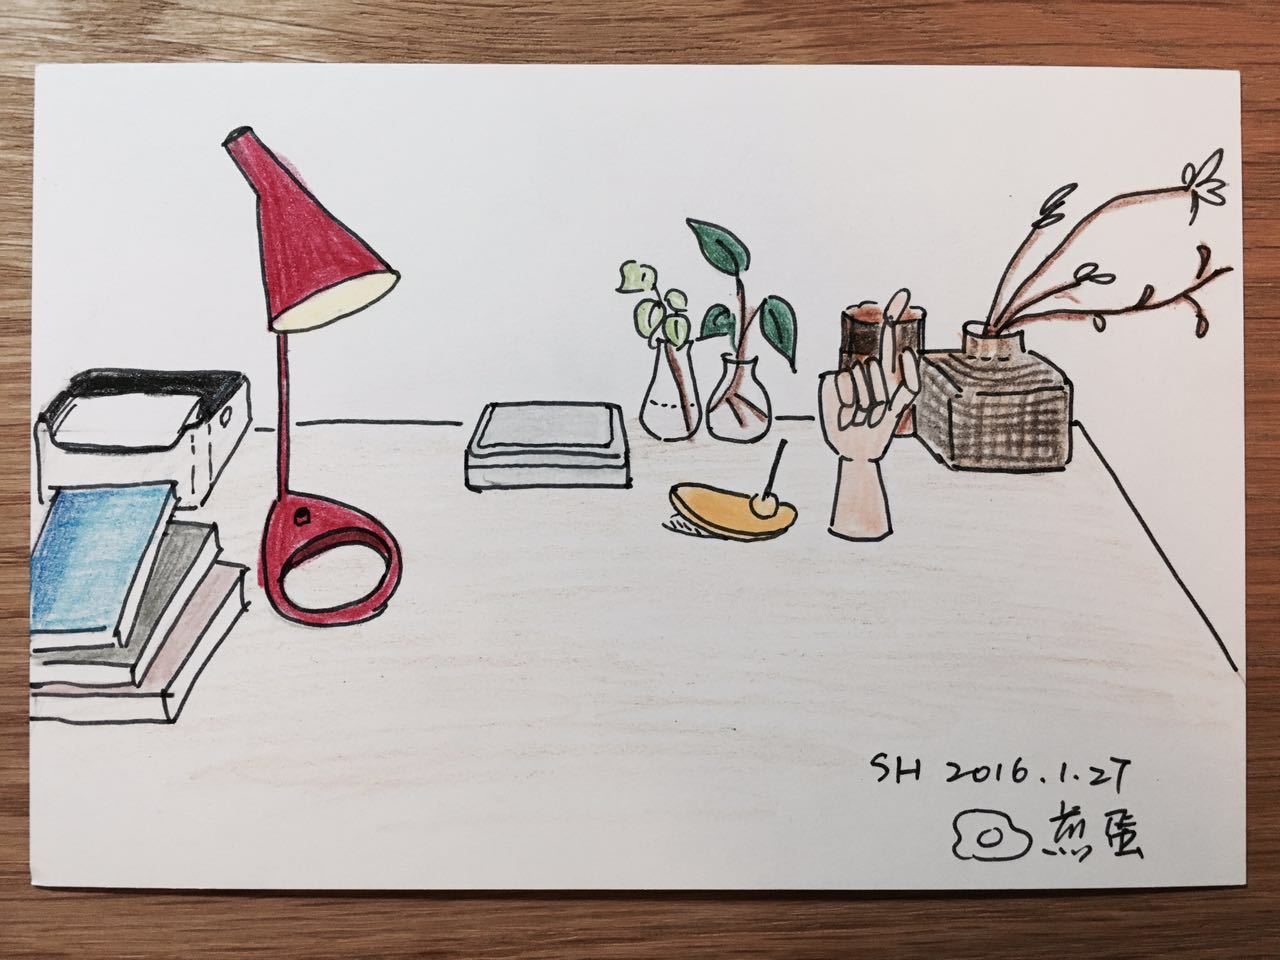 SH 2016.1.27
煎蛋